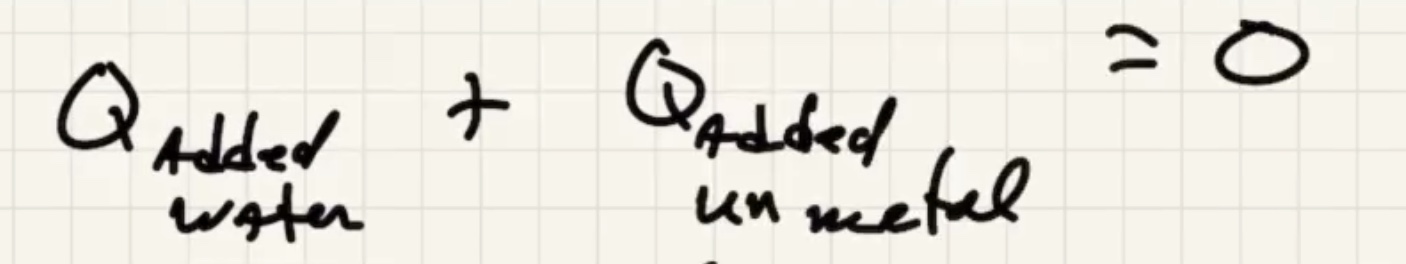 Q Added water + Q Added un metal = 0